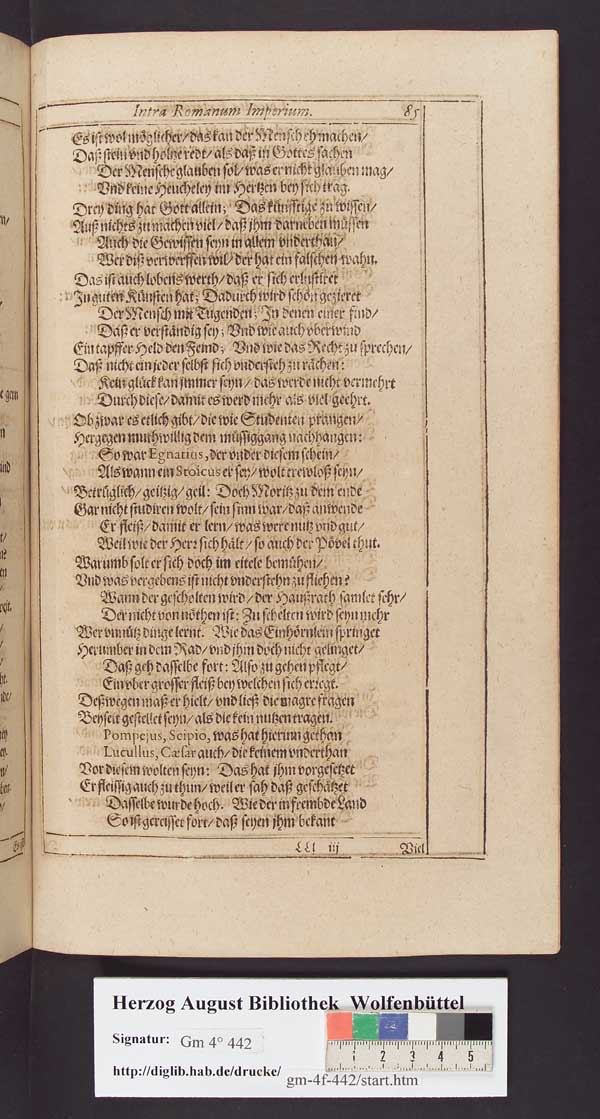 Intra Romanum Imperium. 85
Es ist wol möglicher/ das kan der Mensch eh machen/
Daß stein vnd holtz redt/ als daß in Gottes sachen
Der Mensche glauben sol/ was er nicht glauben mag/
Vnd keine Heucheley im Hertzen bey sich trag.
Drey ding hat Gott allein; Das künfftige zu wissen/
Auß nichts zu machen viel/ daß jhm darneben müssen
Auch die Gewissen seyn in allem vnderthan/
Wer diß verwerffen wil/ der hat ein falschen wahn.
Das ist auch lobens werth/ daß er sich erlustiret
In guten Künsten hat; Dadurch wird schön gezieret
Der Mensch mit Tugenden; In denen einer find/
Daß er verständig sey; Vnd wie auch vberwind
Ein tapffer Held den Feind; Vnd wie das Recht zu sprechen/
Daß nicht ein jeder selbst sich vndersteh zu rächen:
Kein glück kan jmmer seyn/ das werde nicht vermehrt
Durch diese/ damit es werd mehr als viel geehrt.
Ob zwar es etlich gibt/ die wie Studenten prangen/
Hergegen muthwillig dem müssiggang nachhangen:
So war Egnatius, der vnder diesem schein/
Als wann ein Stoicus er sey/ wolt trewloß seyn/
Betrüglich/ geitzig/ geil: Doch Moritz zu dem ende
Gar nicht studiren wolt/ sein sinn war/ daß anwende
Er fleiß/ damit er lern/ was were nutz vnd gut/
Weil wie der Herr sich hält/ so auch der Pövel thut.
Warumb solt er sich doch im eitele bemühen/
Vnd was vergebens ist nicht vnderstehn zu fliehen?
Wann der gescholten wird/ der Haußrath samlet sehr/
Der nicht von nöthen ist: Zu schelten wird seyn mehr
Wer vnnütz dinge lernt. Wie das Einhörnlein springet
Herumber in dem Rad/ vnd jhm doch nicht gelinget/
Daß geh dasselbe fort: Also zu gehen pflegt/
Ein vber grosser fleiß bey welchen sich erregt.
Deßwegen maß er hielt/ vnd ließ die magre fragen
Beyseit gestellet seyn/ als die kein nutzen tragen.
Pompejus, Scipio, was hat hierinn gethan
Lucullus, Cæsar auch/ die keinem vnderthan
Vor diesem wolten seyn: Das hat jhm vorgesetzet
Er fleissig auch zu thun/ weil er sah daß geschätzet
Dasselbe wurde hoch. Wie der in frembde Land
So ist gereiset fort/ daß seyen jhm bekant
LLl iij Viel
Herzog August Bibliothek Wolfenbüttel
Signatur: Gm 4° 442
http://diglib.hab.de/drucke/ gm-4f-442/start.htm
1 2 3 4 5